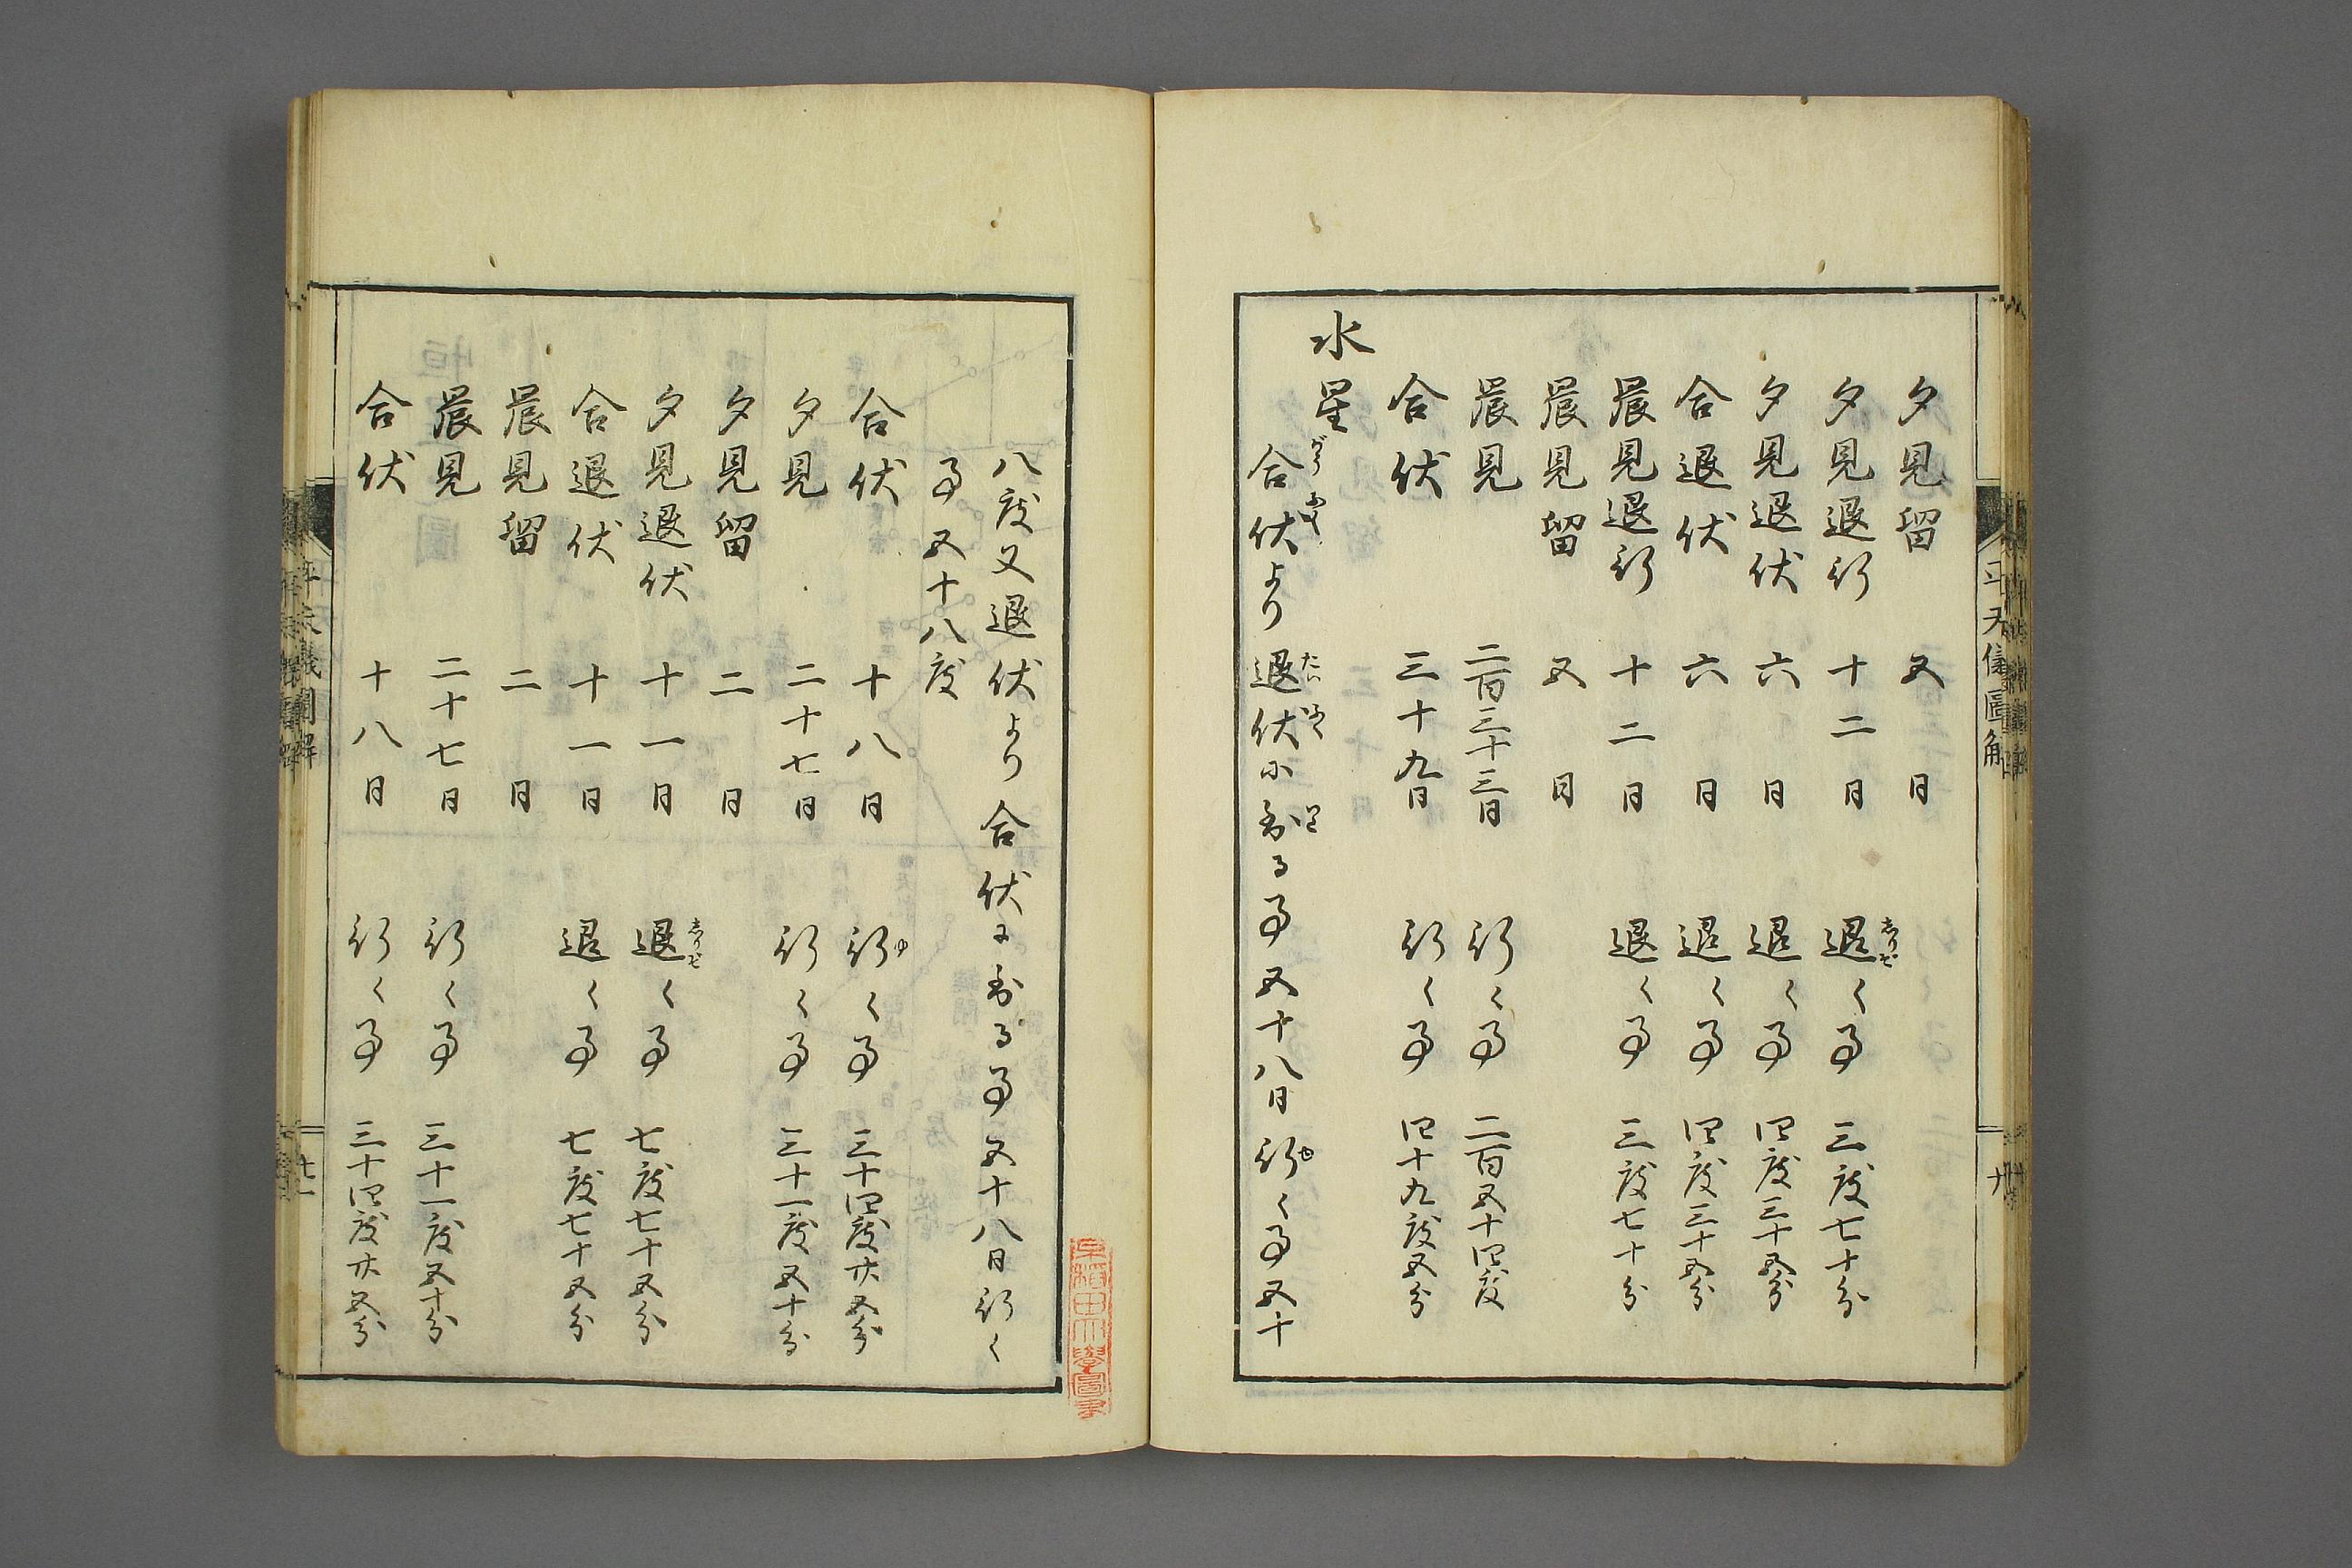 夕見留 五日
夕見退行 十二日 退く事 三度七十分
夕見退伏 六日 退く事 四度三十五分
合退伏 六日 退く事 四度三十五分
晨見退行 十二日 退く事 三度七十分
晨見留 五日
晨見 二百三十三日 行く事 二百五十四度
合伏 三十九日 行く事 四十九度五分
水星
合伏より退伏に至る事五十八日行く事五十
八度又退伏より合伏に至る事五十八日行く
事五十八度
合伏 十八日 行く事 三十四度廿五分
夕見 二十七日 行く事 三十一度五十分
夕見留 二日
夕見退伏 十一日 退く事 七度七十五分
合退伏 十一日 退く事 七度七十五分
晨見留 二日
晨見 二十七日 行く事 三十一度五十分
合伏 十八日 行く事 三十四度廿五分
平天儀圖解